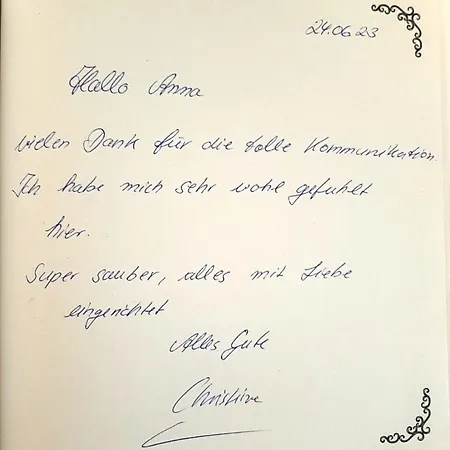 24.06.23
Hallo Anna
vielen Dank für die tolle Kommunikation.
Ich habe mich sehr wohl gefühlt
hier.
Super sauber, alles mit Liebe
eingerichtet
Alles Gute
Christine